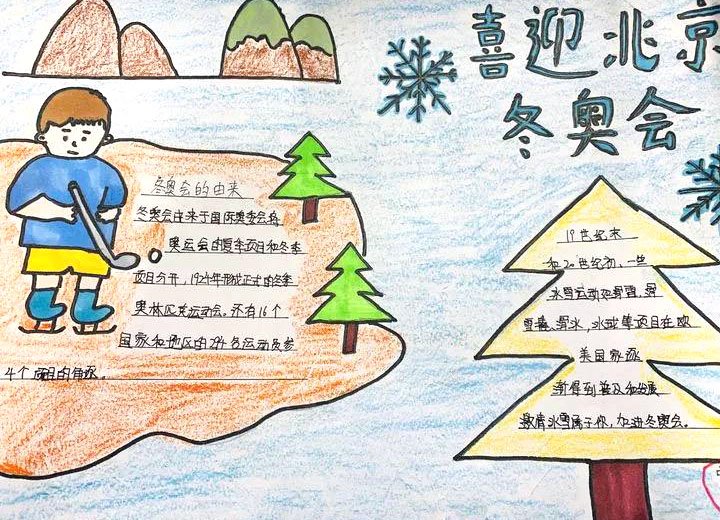 喜迎北京
冬奥会
冬奥会的由来
冬奥会由来于国际奥委会将
奥运会的夏季项目和冬季
项目分开,1924年形成正式的冬季
奥林匹克运动会。还有16个
国家和地区的
运动员参
4个项目的角逐。
19世纪末
和20世纪初、一些
冰雪运动如滑雪,滑
雪橇、滑冰,冰球等项目在欧
美国家逐
渐得到普及和发展
激情冰雪属于你,加进冬奥会。